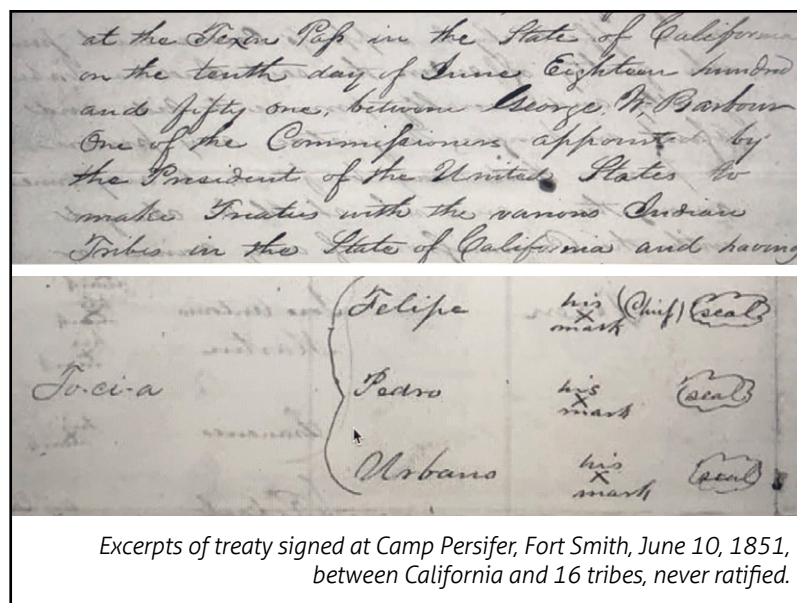 at the Texon Pass in the State of California
on the tenth day of June Eighteen hundred
and fifty one, between George. W, Barbour
One of the Commissioners appointed by
the President of the United States to
make Treaties with the various Indian
Tribes in the State of California and having
Felipe his x mark (Chief) seal
To-ci-a Pedro his x mark seal
Urbano his x mark seal
Excerpts of treaty signed at Camp Persifer, Fort Smith, June 10, 1851,
between California and 16 tribes, never ratified.